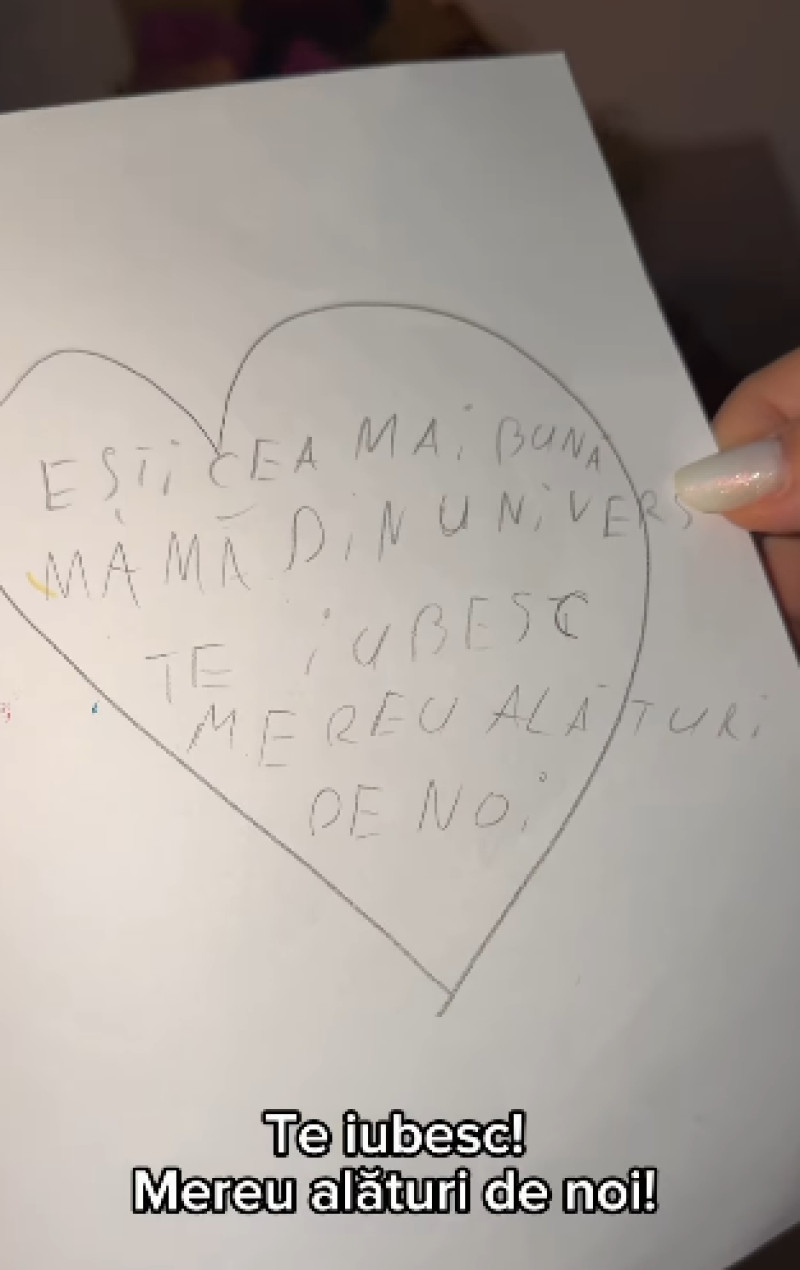 EȘTi CEA MAi BUNA
MAMĂ DiN UNiVERS
TE iUBESC
MEREU ALĂTURi
DE NOi
Te iubesc!
Mereu alături de noi!